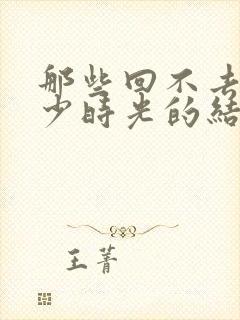 那些回不去
少时光的结
王菁